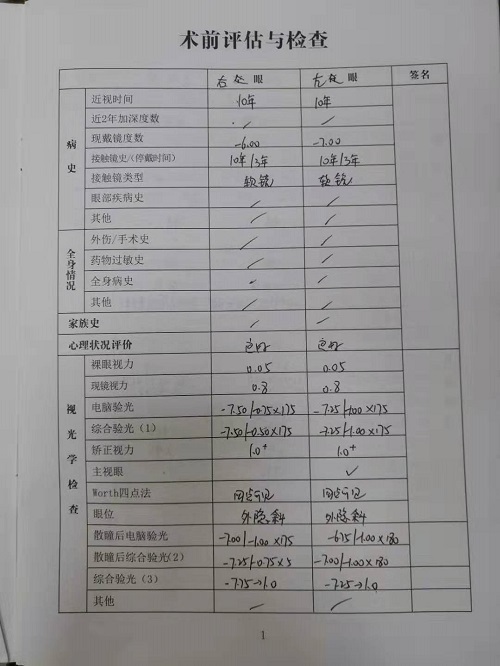 术前评估与检查
右 眼 左 眼 签名
病史
近视时间 10年 10年
近2年加深度数 / /
现戴镜度数 -6.00 -7.00
接触镜史/(停戴时间) 10年/3年 10年/3年
接触镜类型 软镜 软镜
眼部疾病史 / /
其他 / /
全身情况
外伤/手术史 / /
药物过敏史 / /
全身病史 /
其他 / /
家族史 / /
心理状况评价 良好 良好
视光学检查
裸眼视力 0.05 0.05
现镜视力 0.8 0.8
电脑验光 -7.50/-0.75×175 -7.25/-1.00×175
综合验光(1) -7.50/-0.50×175 -7.25/-1.00×175
矫正视力 1.0+ 1.0+
主视眼 ✓
Worth四点法
眼位 外隐斜 外隐斜
散瞳后电脑验光 -7.00/-1.00×175 -6.75/-1.00×180
散瞳后综合验光(2) -7.25/-0.75×5 -7.00/-1.00×180
综合验光(3) -7.75→1.0 -7.25→1.0
其他 / /
1